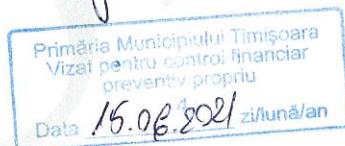 Primăria Municipiului Timișoara
Vizat pentru control financiar
preventiv propriu
Data 15.06.2021 zi/lună/an